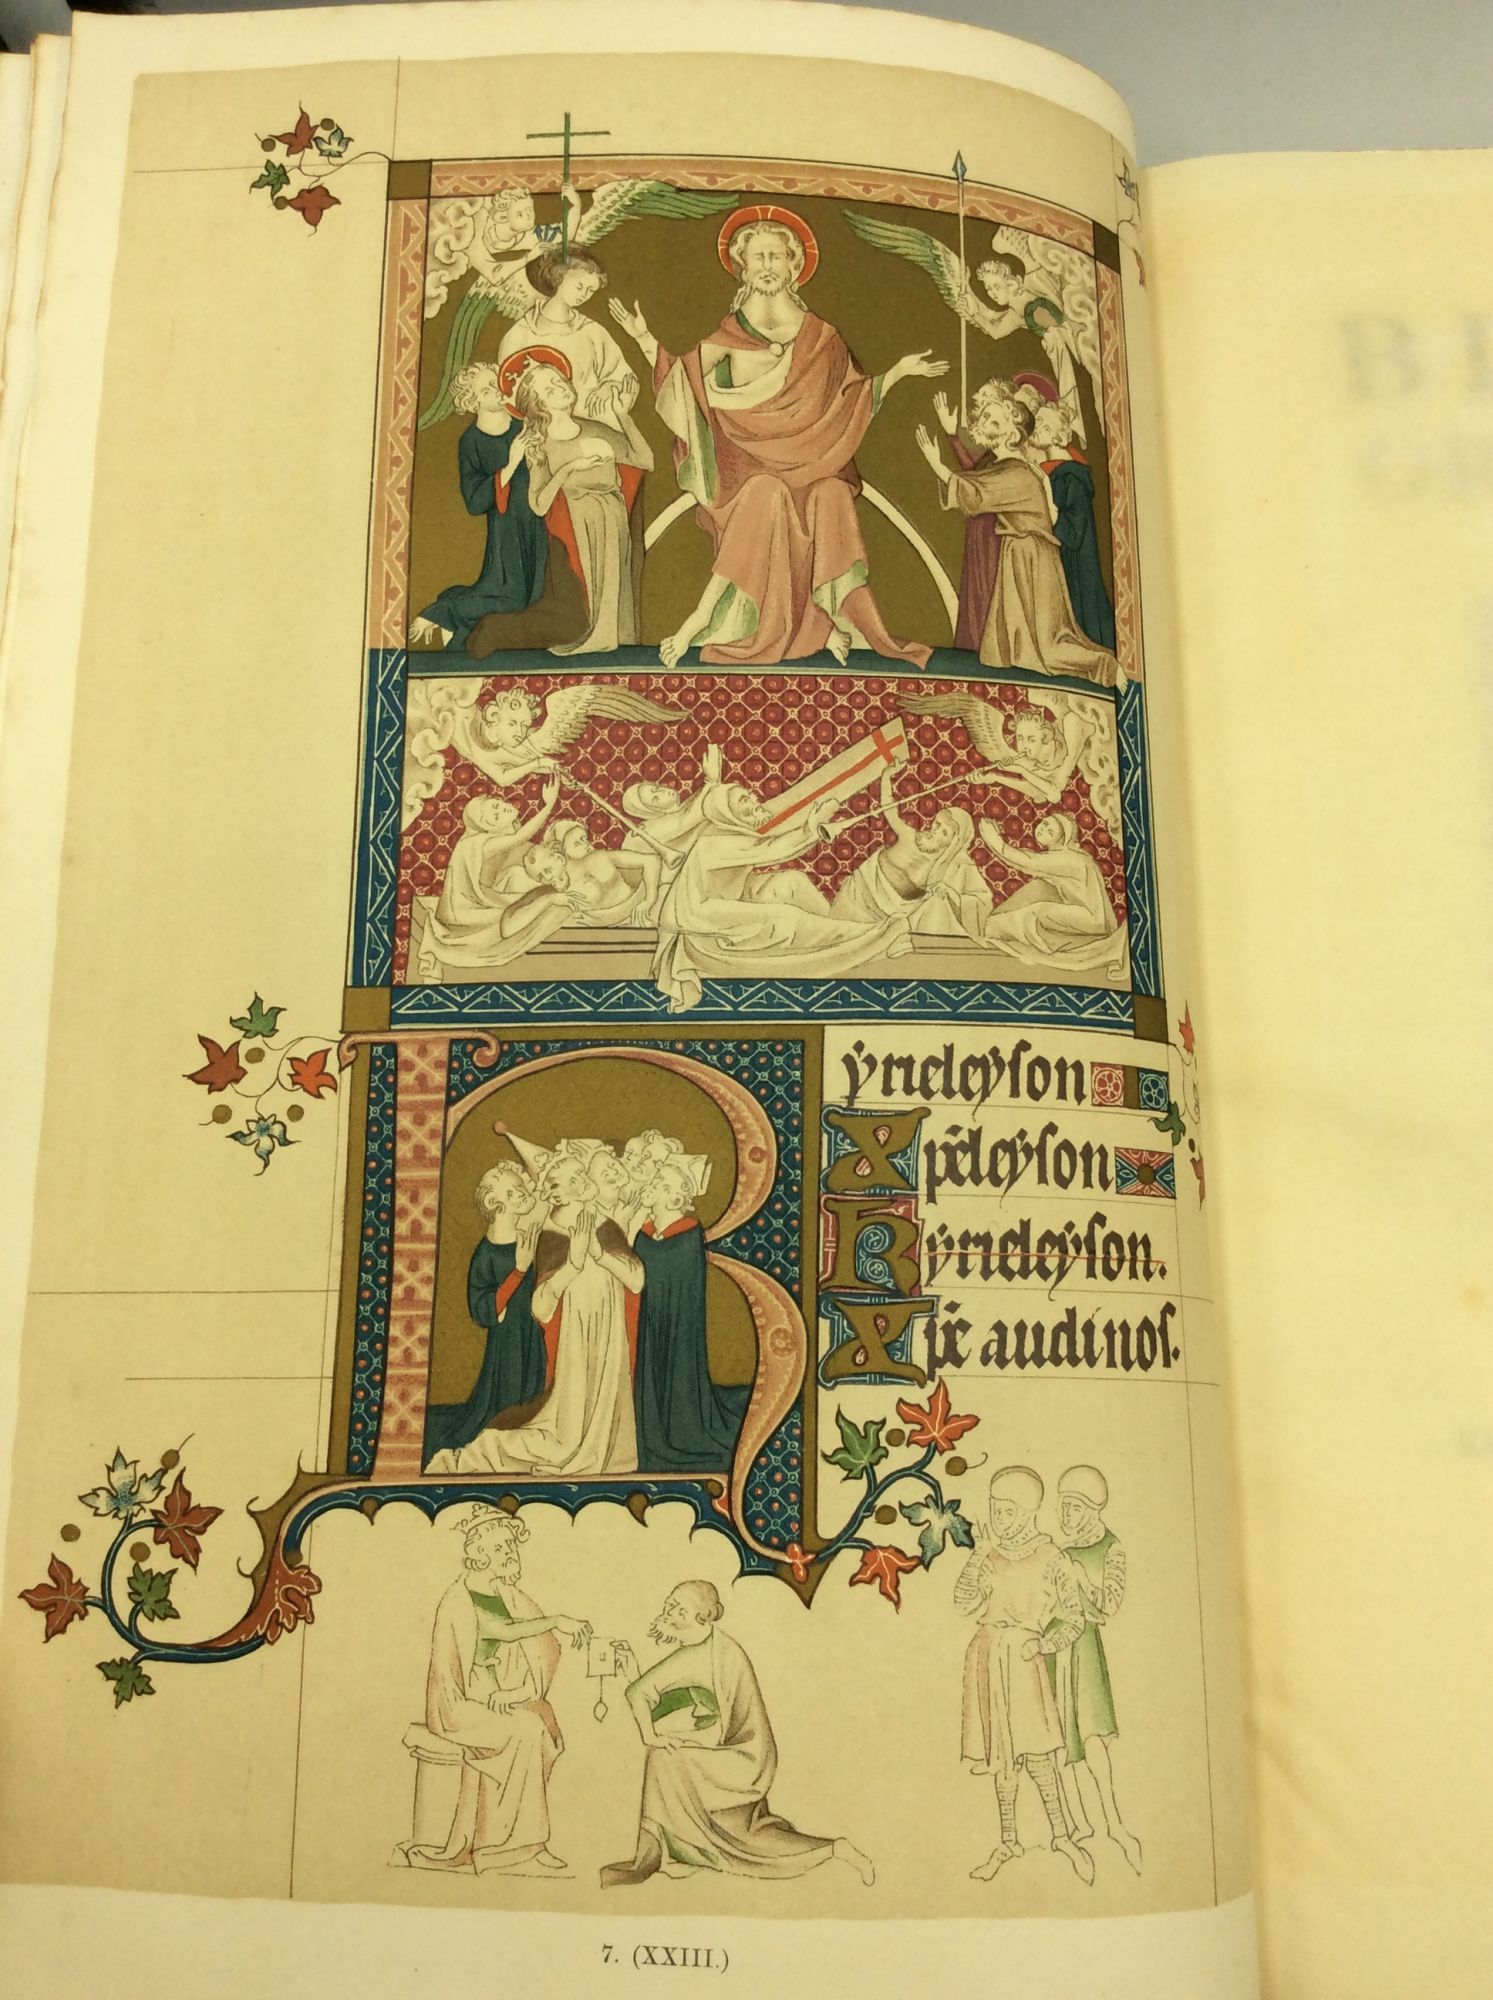 Kyrieleyson
Xp̄eleyson
Kyrieleyson.
Xp̄e audi nos.
7. (XXIII.)